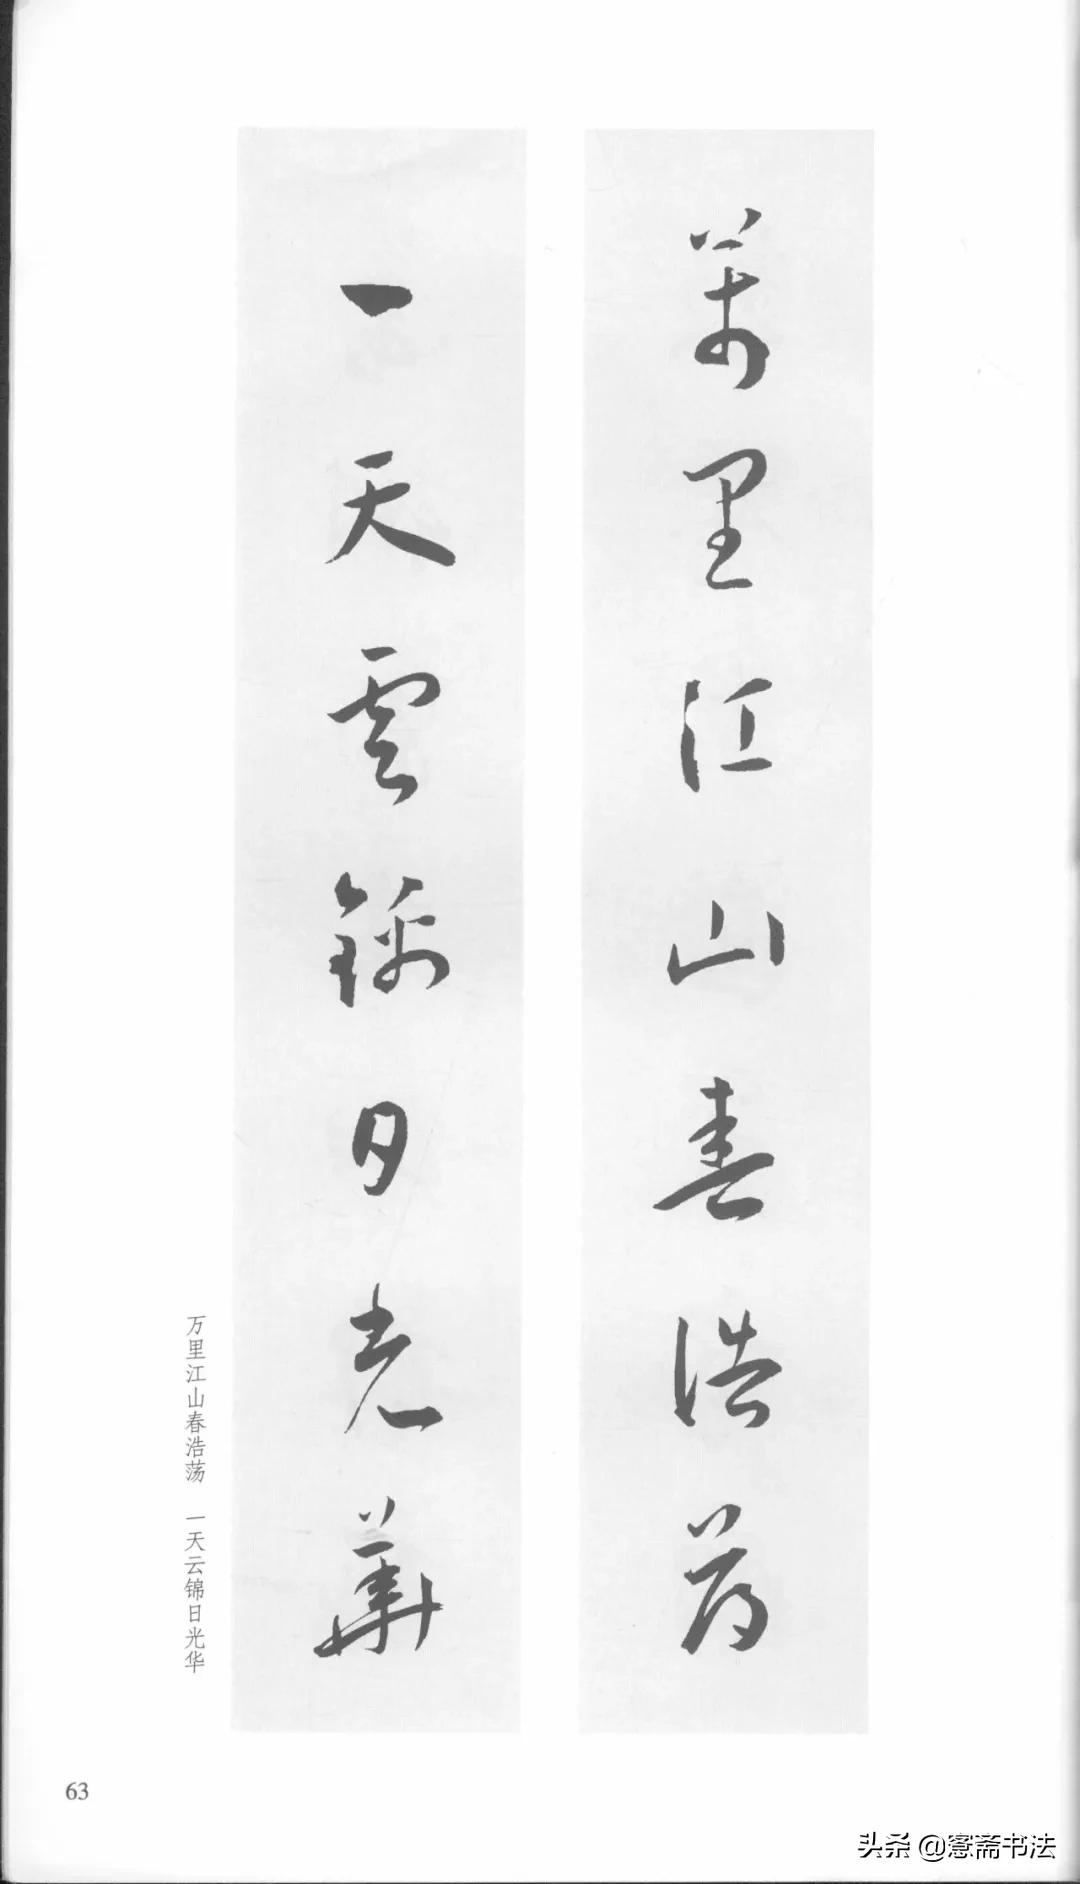 萬里江山春浩荡
一天雲錦日光華
万里江山春浩荡 一天云锦日光华
63
头条 @窓斋书法